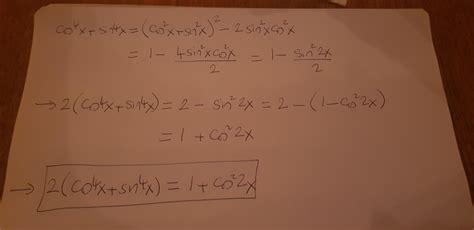 co⁴x+sin⁴x = (co²x+sin²x)² - 2sin²xco²x
= 1 - 4sin²xco²x/2 = 1 - sin²2x/2
→ 2(co⁴x+sin⁴x) = 2 - sin²2x = 2 - (1-co²2x)
= 1 + co²2x
→ 2(co⁴x+sin⁴x) = 1 + co²2x